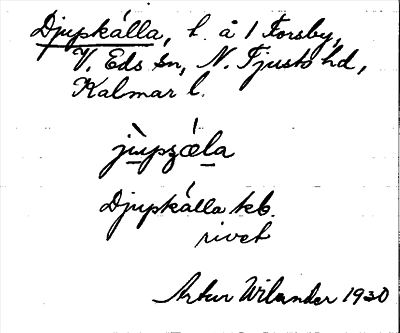 Djupkálla, t. å 1 Forsby,
V. Eds sn, N. Tjusts hd,
Kalmar l.
jùpzǽla
Djupkálla tkb.
rivet
Artur Wilander 1930